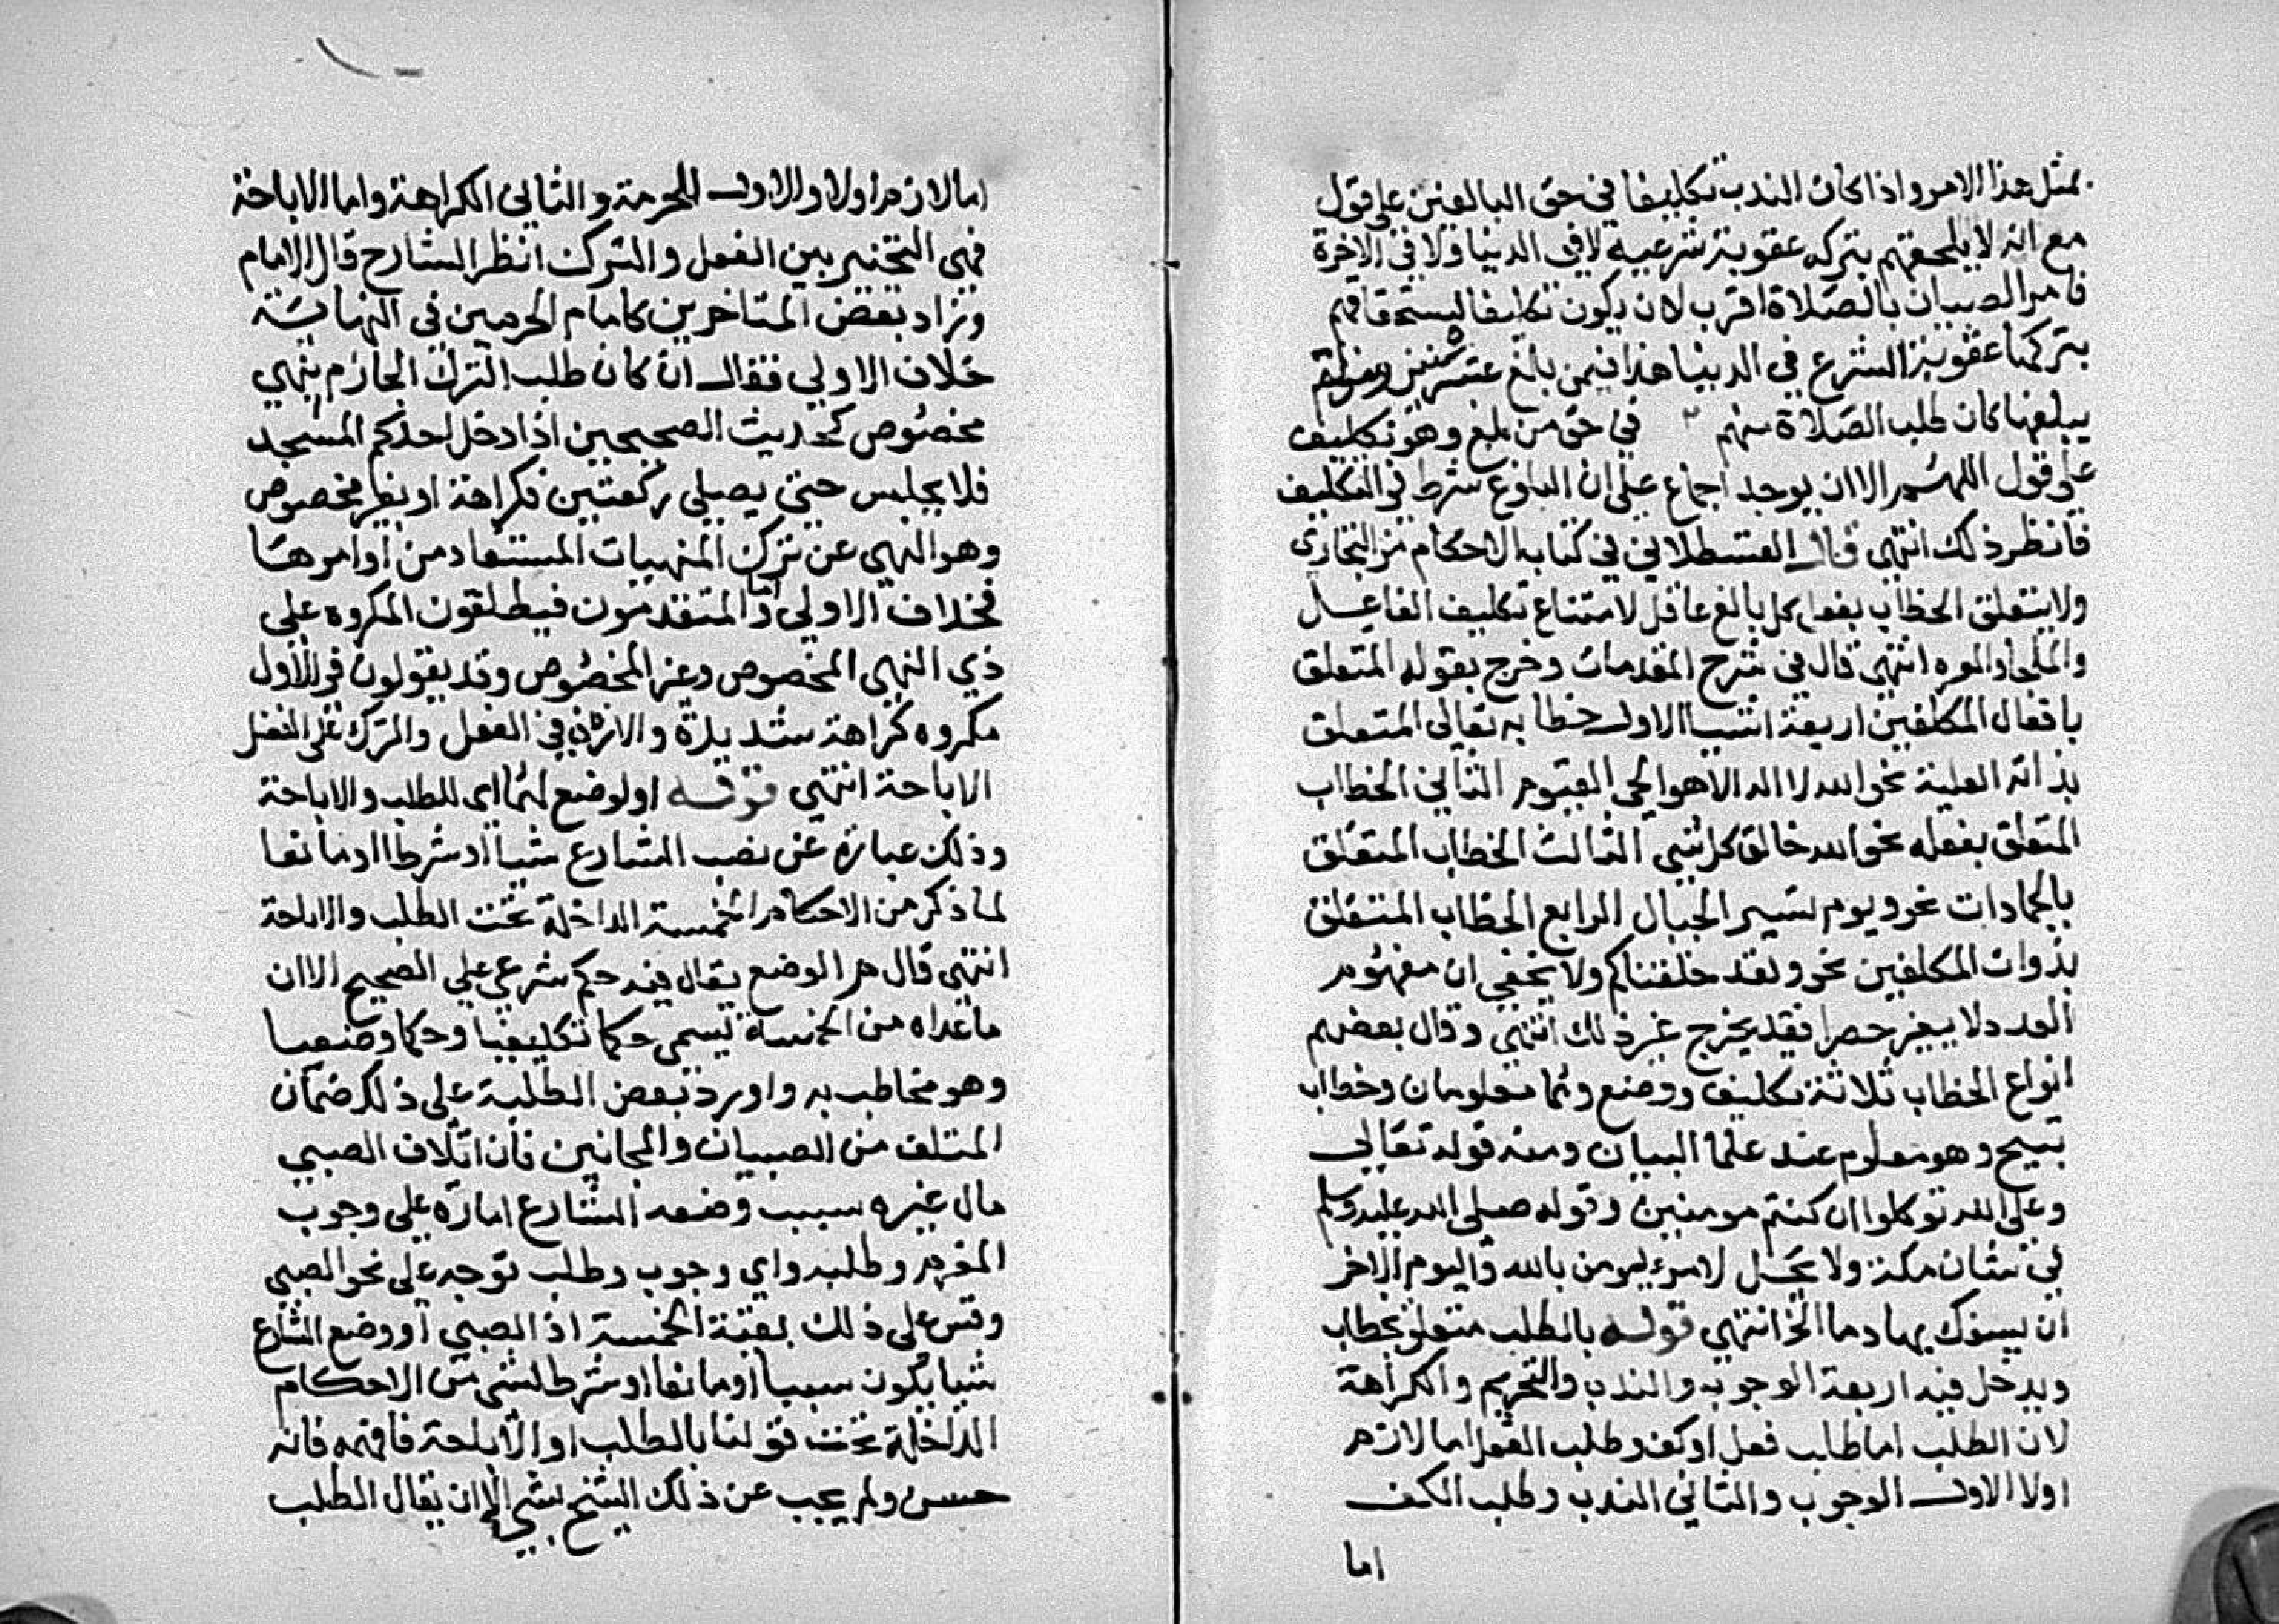 بمثل هذا الامر واذا كان الندب تكليفا في حق البالغين على قول
مع انه لا يلحقهم بتركه عقوبة شرعية لا في الدنيا ولا في الاخرة
فامر الصبيان بالصلاة اقرب لان يكون تكليفا ليستحقاقهم
بتركها عقوبة الشرع في الدنيا هذا فيمن بلغ عشر سنين ومن لم
يبلغها كان طلب الصلاة منهم في حق من بلغ وهو تكليف
على قول اللهم الا ان يوجد اجماع على ان البلوغ شرط في التكليف
فانظر ذلك انتهى قال القسطلاني في كتاب الاحكام من البخاري
ولا يتعلق الخطاب بفعل كل بالغ عاقل لامتناع تكليف الغافل
والملجا والمكره انتهى قال في شرح المقدمات وخرج بقوله المتعلق
بافعال المكلفين اربعة اشيا الاول خطابه تعالى المتعلق
بذاته العلية نحو الله لا اله الا هو الحي القيوم الثاني الخطاب
المتعلق بفعله نحو الله خالق كل شي الثالث الخطاب المتعلق
بالجمادات نحو ويوم نسير الجبال الرابع الخطاب المتعلق
بذوات المكلفين نحو ولقد خلقناكم ولا يخفى ان مفهوم
العدد لا يفيد حصرا فقد يخرج غير ذلك انتهى وقال بعضهم
انواع الخطاب ثلاثة تكليف ووضع وهما معلومان وخطاب
تهييج وهو معلوم عند علما البيان ومنه قوله تعالى
وعلى الله توكلوا ان كنتم مومنين وقوله صلى الله عليه وسلم
في شان مكة ولا يحل لامرء يومن بالله واليوم الاخر
ان يسفك بها دما الخ انتهى قوله بالطلب متعلق بخطاب
ويدخل فيه اربعة الوجوب والندب والتحريم والكراهة
لان الطلب اما طلب فعل او كف وطلب الفعل اما لازم
اولا الاول الوجوب والثاني الندب وطلب الكف
اما
اما لازم اولا والاول للحرمة والثاني الكراهة واما الاباحة
فهي التخيير بين الفعل والترك انظر الشارح قال الامام
وزاد بعض المتاخرين كامام الحرمين في النهاية
خلاف الاولى فقال ان كان طلب الترك الجازم بنهي
مخصوص كحديث الصحيحين اذا دخل احدكم المسجد
فلا يجلس حتى يصلي ركعتين فكراهة او بغير مخصوص
وهو النهي عن ترك المنهيات المستفاد من اوامرها
فخلاف الاولى واما المتقدمون فيطلقون المكروه على
ذي النهي المخصوص وغير المخصوص وقد يقولون في الاول
مكروه كراهة شديدة والاذن في الفعل والترك على الفضل
الاباحة انتهى قوله او لوضع لهما اي للطلب والاباحة
وذلك عبارة عن نصب الشارع شيا او شرطا او مانعا
لما ذكر من الاحكام الخمسة الداخلة تحت الطلب والاباحة
انتهى قال هر الوضع يقال فيه حكم شرعي على الصحيح الا ان
ما عداه من الخمسة تسمى حكما تكليفيا وحكما وضعيا
وهو مخاطب به واورد بعض الطلبة على ذلك ضمان
المتلف من الصبيان والمجانين فان اتلاف الصبي
مال غيره سبب وضعه الشارع امارة على وجوب
المغرم وطلبه واي وجوب وطلب توجه على نحو الصبي
وقس على ذلك بقية الخمسة اذ الصبي او وضع الشارع
شيا يكون سببا او مانعا او شرطا لشي من الاحكام
الداخلة تحت قولنا بالطلب او الاباحة فافهمه فانه
حسن ولم يجب عن ذلك الشيخ بشي الا ان يقال الطلب